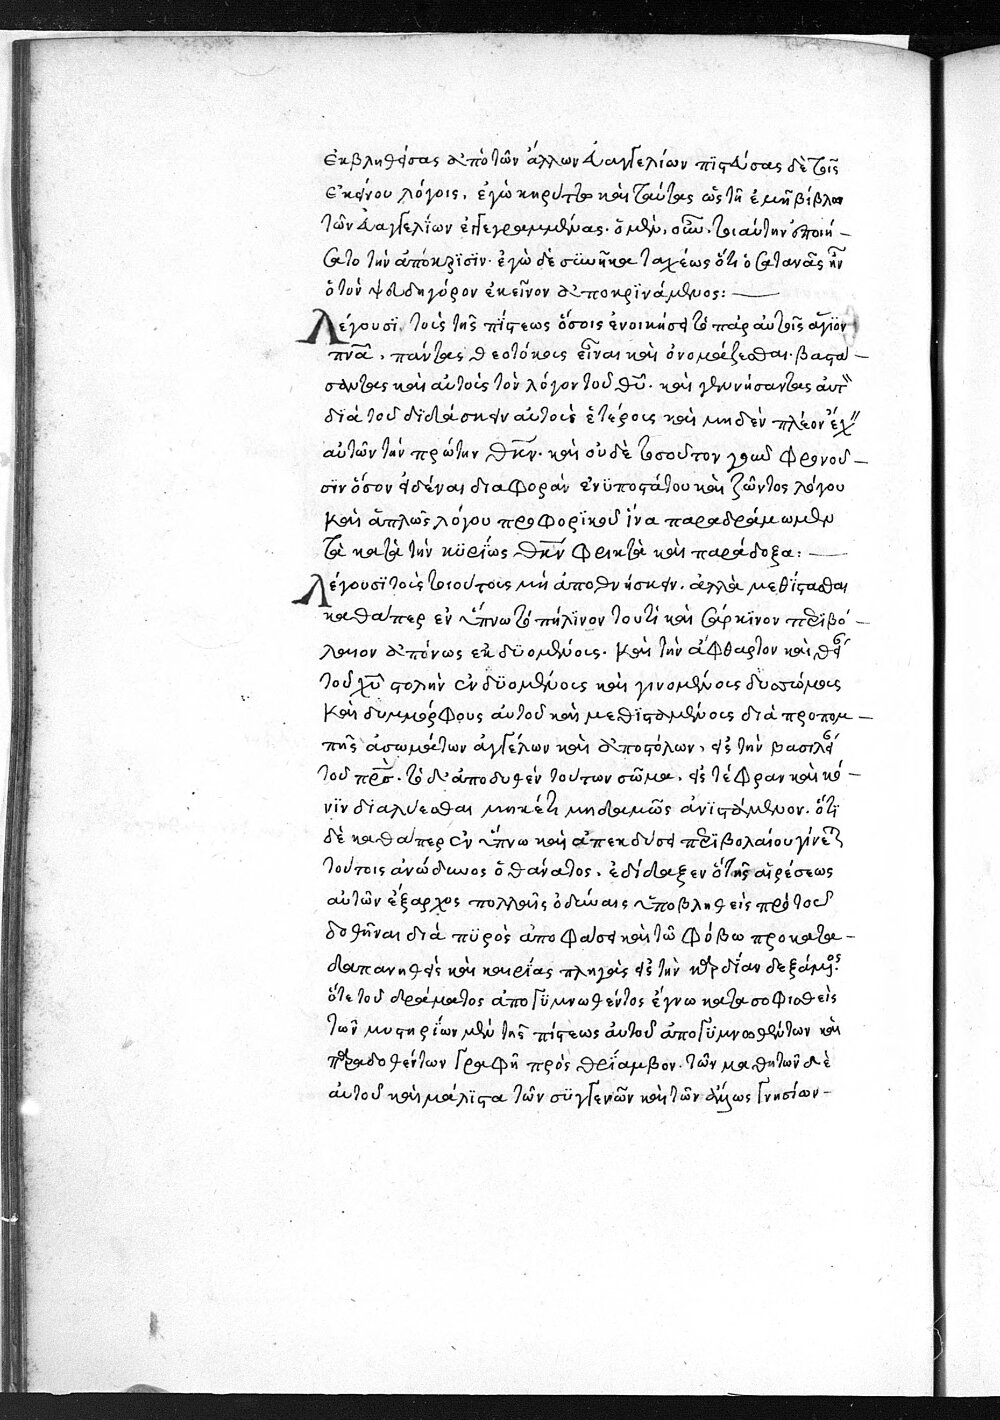 ἐκβληθείσας ἀπὸ τῶν ἄλλων εὐαγγελίων πϊστεύσας δὲ τοῖς
ἐκείνου λόγοις, ἐγὼ κηρύττω καὶ ταύτας ὡς τῆ ἐμῆ βίβλω
τῶν εὐαγγελΐων ἐγγεγραμμένας. ὁ μὲν, οὖν, τοιαύτην ἐποιή-
σατο τὴν ἀπόκρϊσϊν. ἐγὼ δὲ σϋνῆκα ταχέως ὅτι ὁ σατανᾶς ἦν
ὁ τὸν ψευδηγόρον ἐκεῖνον ἀποκρϊνάμενος:
Λέγουσϊ, τοὺς τῆς πΐστεως ὅσοις ἐνοικήσει τὸ παρ αὐτοῖς ἅγϊον
πνα, πάντας θεοτόκους εἶναι καὶ ὀνομάζεσθαι. βαστά-
σαντας καὶ αὐτοὺς τὸν λόγον τοῦ θυ. καὶ γεννήσαντας αὐτ
διὰ τοῦ δϊδάσκειν αὐτοὺς ἑτέρους καὶ μηδὲν πλέον ἔχ
αὐτῶν τὴν πρώτην θκν. καὶ οὐδὲ τοσοῦτον γοῦν φρονοῦ-
σϊν ὅσον εἰδέναι διαφορὰν ἐνϋποστάτου καὶ ζῶντος λόγου
καὶ ἁπλῶς λόγου προφορϊκοῦ ἵνα παραδράμωμεν
τὰ κατὰ τὴν κϋρΐως θκν φρικτὰ καὶ παράδοξα:
Λέγουσϊ τοὺς τοιούτους μὴ ἀποθνήσκειν. ἀλλὰ μεθΐστασθαι
καθάπερ ἐν ὕπνω τὸ πήλϊνον τουτὶ καὶ σάρκϊνον περϊβό-
λαιον ἀπόνως ἐκδϋομένους. καὶ τὴν ἄφθαρτον καὶ θεί
τοῦ χυ στολὴν ἐνδϋομένους καὶ γινομένους δυσσώμους
καὶ συμμόρφους αὐτοῦ καὶ μεθϊσταμένους διὰ προπομ-
πῆς ἀσωμάτων ἀγγέλων καὶ ἀποστόλων, εἰς τὴν βασιλεί
τοῦ πρς. τὸ δ' ἀποδυθὲν τούτων σῶμα, εἰς τέφραν καὶ κό-
νϊν διαλύεσθαι μηκέτι μηδαμῶς ἀνϊστάμενον. ὅτι
δὲ καθάπερ ἐν ὕπνω καὶ ἀπεκδύσει περϊβολαίου γίνετ
τούτοις ἀνώδυνος ὁ θάνατος, ἐδίδαξεν ὁ τῆς αἱρέσεως
αὐτῶν ἔξαρχος πολλαῖς ὀδύναις ὑποβληθεὶς πρὸ τοῦ
δοθῆναι διὰ πϋρὸς ἀποφάσει καὶ τῶ φόβω προκατα-
δαπανηθεὶς καὶ καιρΐας πληγὰς εἰς τὴν καρδΐαν δεξάμενος
ὅτε τοῦ δράματος ἀπογϋμνωθέντος ἔγνω κατασοφισθεὶς
τῶν μυστηρΐων μὲν τῆς πΐστεως αὐτοῦ ἀπογϋμνωθέντων καὶ
παραδοθέντων γραφῆ πρὸς θρΐαμβον. τῶν μαθητῶν δὲ
αὐτοῦ καὶ μάλϊστα τῶν σϋγγενῶν καὶ τῶν ἄλλως γνησίων-